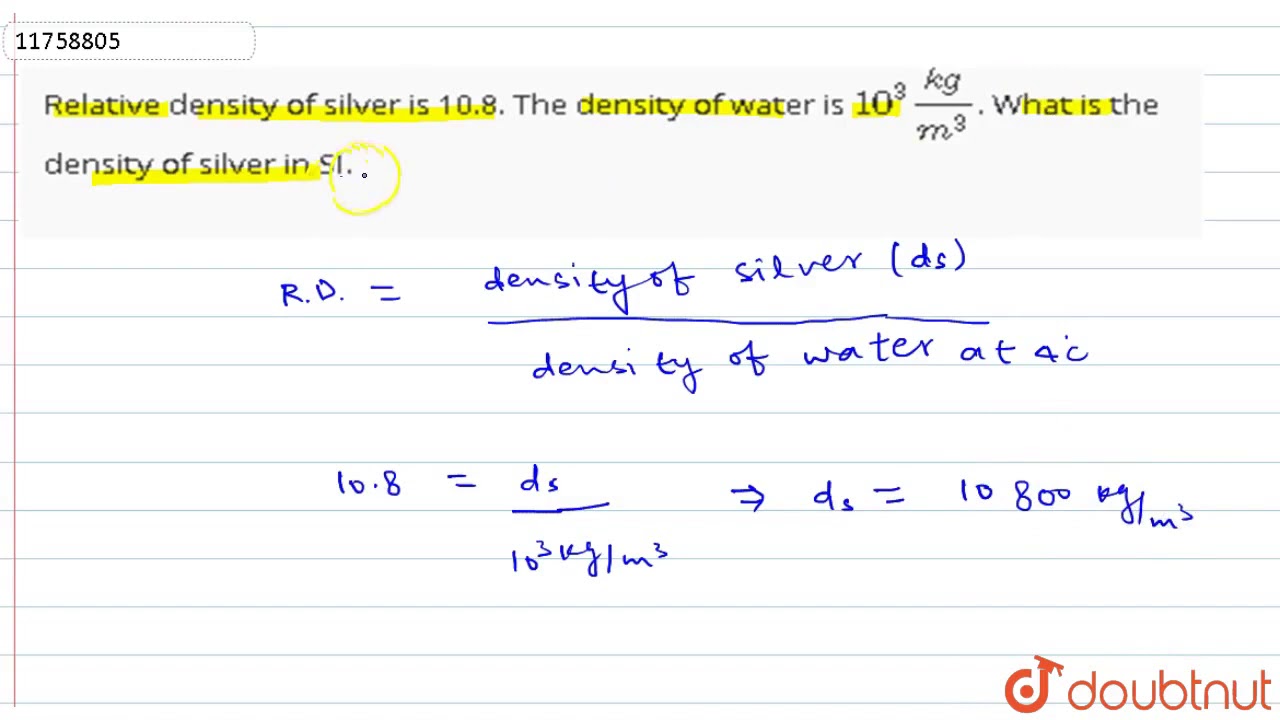 11758805
Relative density of silver is 10.8. The density of water is 10³ kg/m³. What is the
density of silver in SI.
R.D. = density of silver (ds)
density of water at 4°c
10.8 = ds ⇒ ds = 10 800 kg/m³
10³ kg/m³
doubtnut